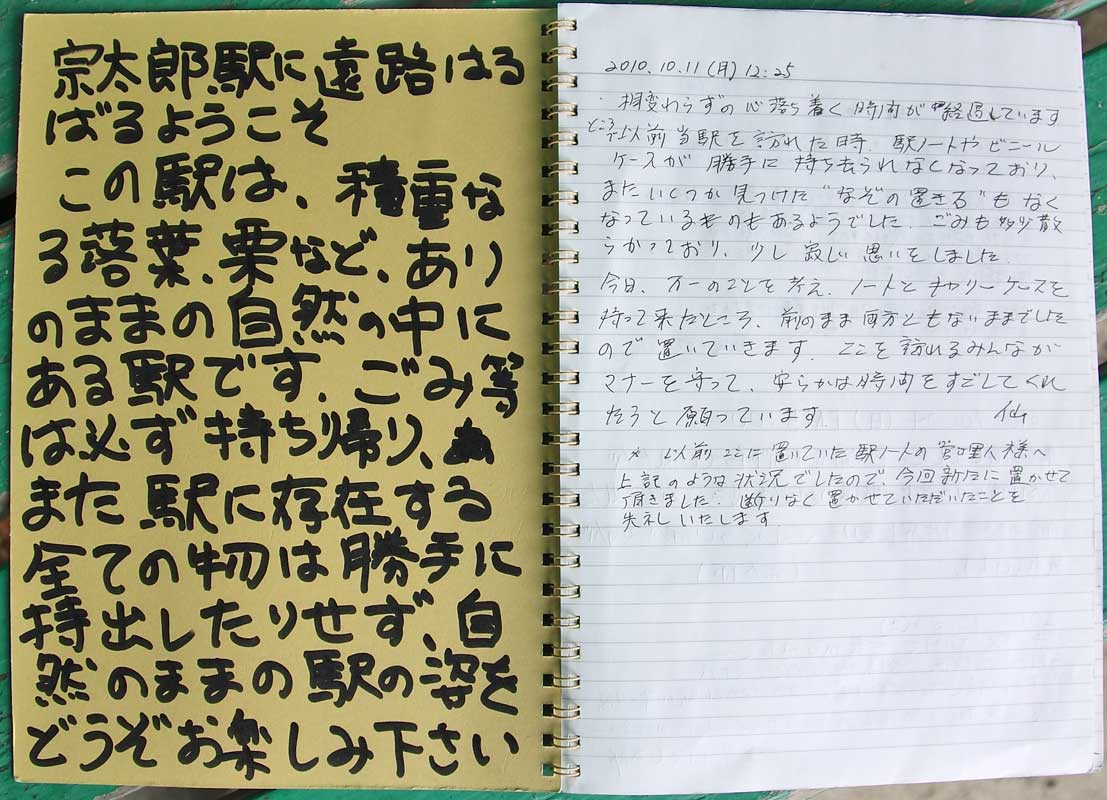 宗太郎駅に遠路はる
ばるようこそ
この駅は、積重な
る落葉、栗など、あり
のままの自然の中に
ある駅です。ごみ等
は必ず持ち帰り、
また駅に存在する
全ての物は勝手に
持出したりせず、自
然のままの駅の姿を
どうぞお楽しみ下さい
2010.10.11(月) 12:25
相変わらずの心落ち着く時間が経過しています
ところで以前当駅を訪れた時、駅ノートやビニール
ケースが勝手に持ち去られなくなっており、
またいくつか見つけた"なぞの置きる"もなく
なっているものもあるようでした。ごみも多少散
らかっており、少し寂しい思いをしました。
今日、万一のことを考え、ノートとチャリーケースを
持って来たところ、前のまま両方ともないままでした
ので置いていきます。ここを訪れるみんなが
マナーを守って、安らかな時間をすごしてくれ
たらと願っています。 仙
* 以前ここに置いていた駅ノートの管理人様へ
上記のような状況でしたので、今回新たに置かせて
頂きました。断りなく置かせていただいたことを
失礼いたします